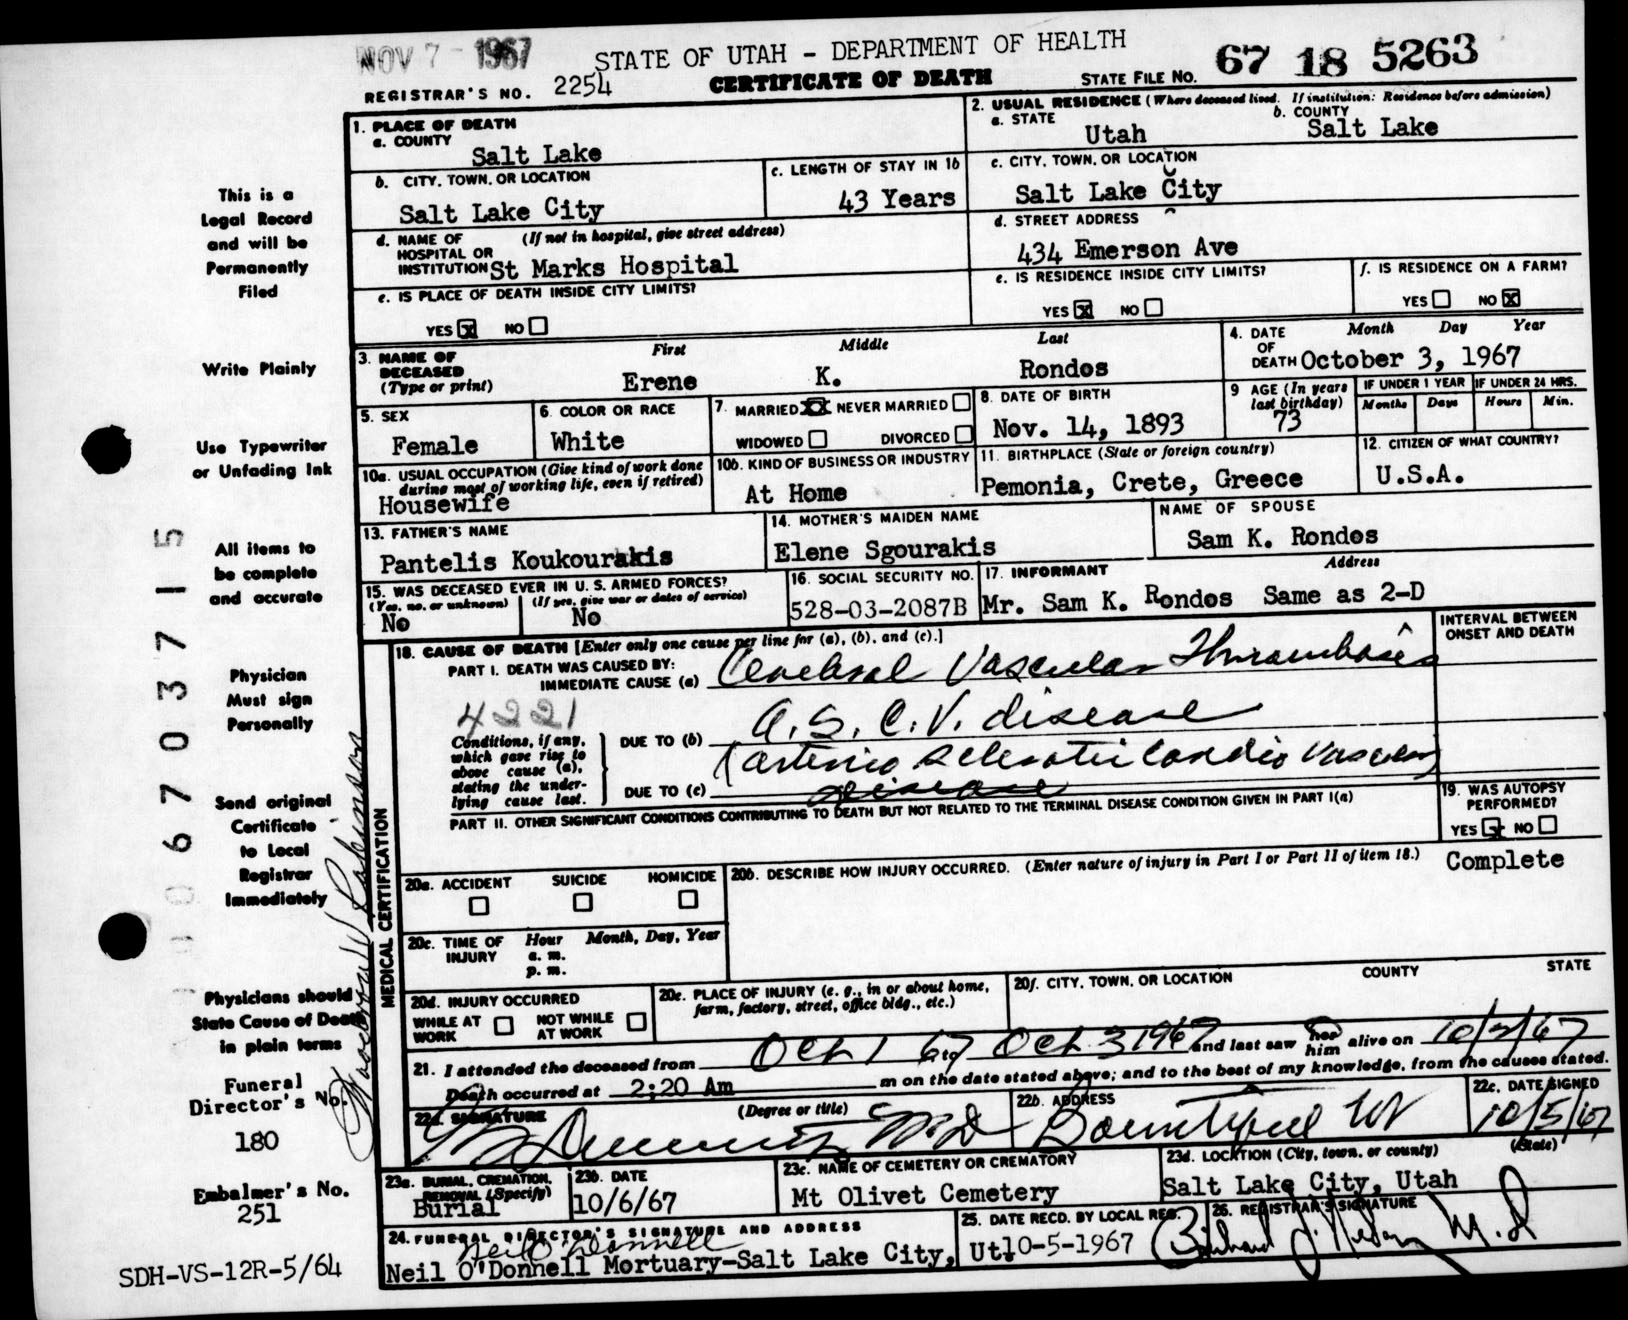 NOV 7 - 1967
STATE OF UTAH - DEPARTMENT OF HEALTH
67 18 5263
REGISTRAR'S NO. 2254
CERTIFICATE OF DEATH
STATE FILE NO.
1. PLACE OF DEATH
a. COUNTY
Salt Lake
2. USUAL RESIDENCE (Where deceased lived. If institution: Residence before admission)
a. STATE
Utah
b. COUNTY
Salt Lake
b. CITY, TOWN, OR LOCATION
Salt Lake City
c. LENGTH OF STAY IN 1b
43 Years
c. CITY, TOWN, OR LOCATION
Salt Lake City
d. NAME OF HOSPITAL OR INSTITUTION
(If not in hospital, give street address)
St Marks Hospital
d. STREET ADDRESS
434 Emerson Ave
e. IS PLACE OF DEATH INSIDE CITY LIMITS?
YES X NO
e. IS RESIDENCE INSIDE CITY LIMITS?
YES X NO
f. IS RESIDENCE ON A FARM?
YES NO X
3. NAME OF DECEASED
(Type or print)
First Middle Last
Erene K. Rondos
4. DATE OF DEATH
Month Day Year
October 3, 1967
5. SEX
Female
6. COLOR OR RACE
White
7. MARRIED XX NEVER MARRIED
WIDOWED DIVORCED
8. DATE OF BIRTH
Nov. 14, 1893
9 AGE (In years last birthday)
73
IF UNDER 1 YEAR
Months Days
IF UNDER 24 HRS.
Hours Min.
10a. USUAL OCCUPATION (Give kind of work done during most of working life, even if retired)
Housewife
10b. KIND OF BUSINESS OR INDUSTRY
At Home
11. BIRTHPLACE (State or foreign country)
Pemonia, Crete, Greece
12. CITIZEN OF WHAT COUNTRY?
U.S.A.
13. FATHER'S NAME
Pantelis Koukourakis
14. MOTHER'S MAIDEN NAME
Elene Sgourakis
NAME OF SPOUSE
Sam K. Rondos
15. WAS DECEASED EVER IN U. S. ARMED FORCES?
(Yes, no, or unknown)
No
(If yes, give war or dates of service)
No
16. SOCIAL SECURITY NO.
528-03-2087B
17. INFORMANT Address
Mr. Sam K. Rondos Same as 2-D
MEDICAL CERTIFICATION
18. CAUSE OF DEATH [Enter only one cause per line for (a), (b), and (c).]
INTERVAL BETWEEN ONSET AND DEATH
PART I. DEATH WAS CAUSED BY:
IMMEDIATE CAUSE (a) Cerebral Vascular Thrombosis
4221
Conditions, if any, which gave rise to above cause (a), stating the underlying cause last.
DUE TO (b) A.S.C.V. disease
(arterio sclerotic Cardio Vascular
DUE TO (c) disease
PART II. OTHER SIGNIFICANT CONDITIONS CONTRIBUTING TO DEATH BUT NOT RELATED TO THE TERMINAL DISEASE CONDITION GIVEN IN PART I(a)
19. WAS AUTOPSY PERFORMED?
YES X NO
Complete
20a. ACCIDENT SUICIDE HOMICIDE
20b. DESCRIBE HOW INJURY OCCURRED. (Enter nature of injury in Part I or Part II of item 18.)
20c. TIME OF INJURY
Hour Month, Day, Year
a. m.
p. m.
20d. INJURY OCCURRED
WHILE AT WORK NOT WHILE AT WORK
20e. PLACE OF INJURY (e. g., in or about home, farm, factory, street, office bldg., etc.)
20f. CITY, TOWN, OR LOCATION COUNTY STATE
21. I attended the deceased from Oct 1 67 to Oct 3 1967 and last saw her him alive on 10/2/67
Death occurred at 2:20 Am m on the date stated above; and to the best of my knowledge, from the causes stated.
22a. SIGNATURE (Degree or title)
MD
22b. ADDRESS
Bountiful Ut
22c. DATE SIGNED
10/5/67
23a. BURIAL, CREMATION, REMOVAL (Specify)
Burial
23b. DATE
10/6/67
23c. NAME OF CEMETERY OR CREMATORY
Mt Olivet Cemetery
23d. LOCATION (City, town, or county) (State)
Salt Lake City, Utah
24. FUNERAL DIRECTOR'S SIGNATURE AND ADDRESS
Neil O'Donnell
Neil O'Donnell Mortuary-Salt Lake City, Ut.
25. DATE RECD. BY LOCAL REG.
10-5-1967
26. REGISTRAR'S SIGNATURE
M.D
This is a
Legal Record
and will be
Permanently
Filed
Write Plainly
Use Typewriter
or Unfading Ink
All items to
be complete
and accurate
Physician
Must sign
Personally
Send original
Certificate
to Local
Registrar
Immediately
Physicians should
State Cause of Death
in plain terms
Funeral
Director's No.
180
Embalmer's No.
251
SDH-VS-12R-5/64
Robinson